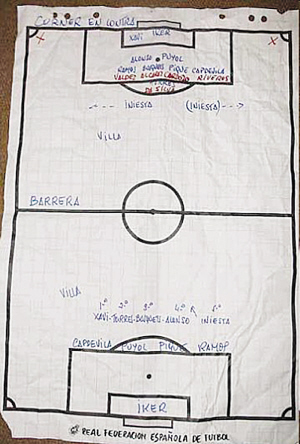 CORNER EN CONTRA
XAVI IKER
ALONSO PUYOL
RAMOS BUSQUETS PIQUE CAPDEVILA
VALDEZ ALCARAZ CARDOZO RIVEROS
DA SILVA
INIESTA (INIESTA)
VILLA
BARRERA
VILLA
1º 2º 3º 4º R 5º
XAVI-TORRES-BUSQUETS-ALONSO INIESTA
CAPDEVILA PUYOL PIQUE RAMOS
IKER
REAL FEDERACION ESPAÑOLA DE FUTBOL